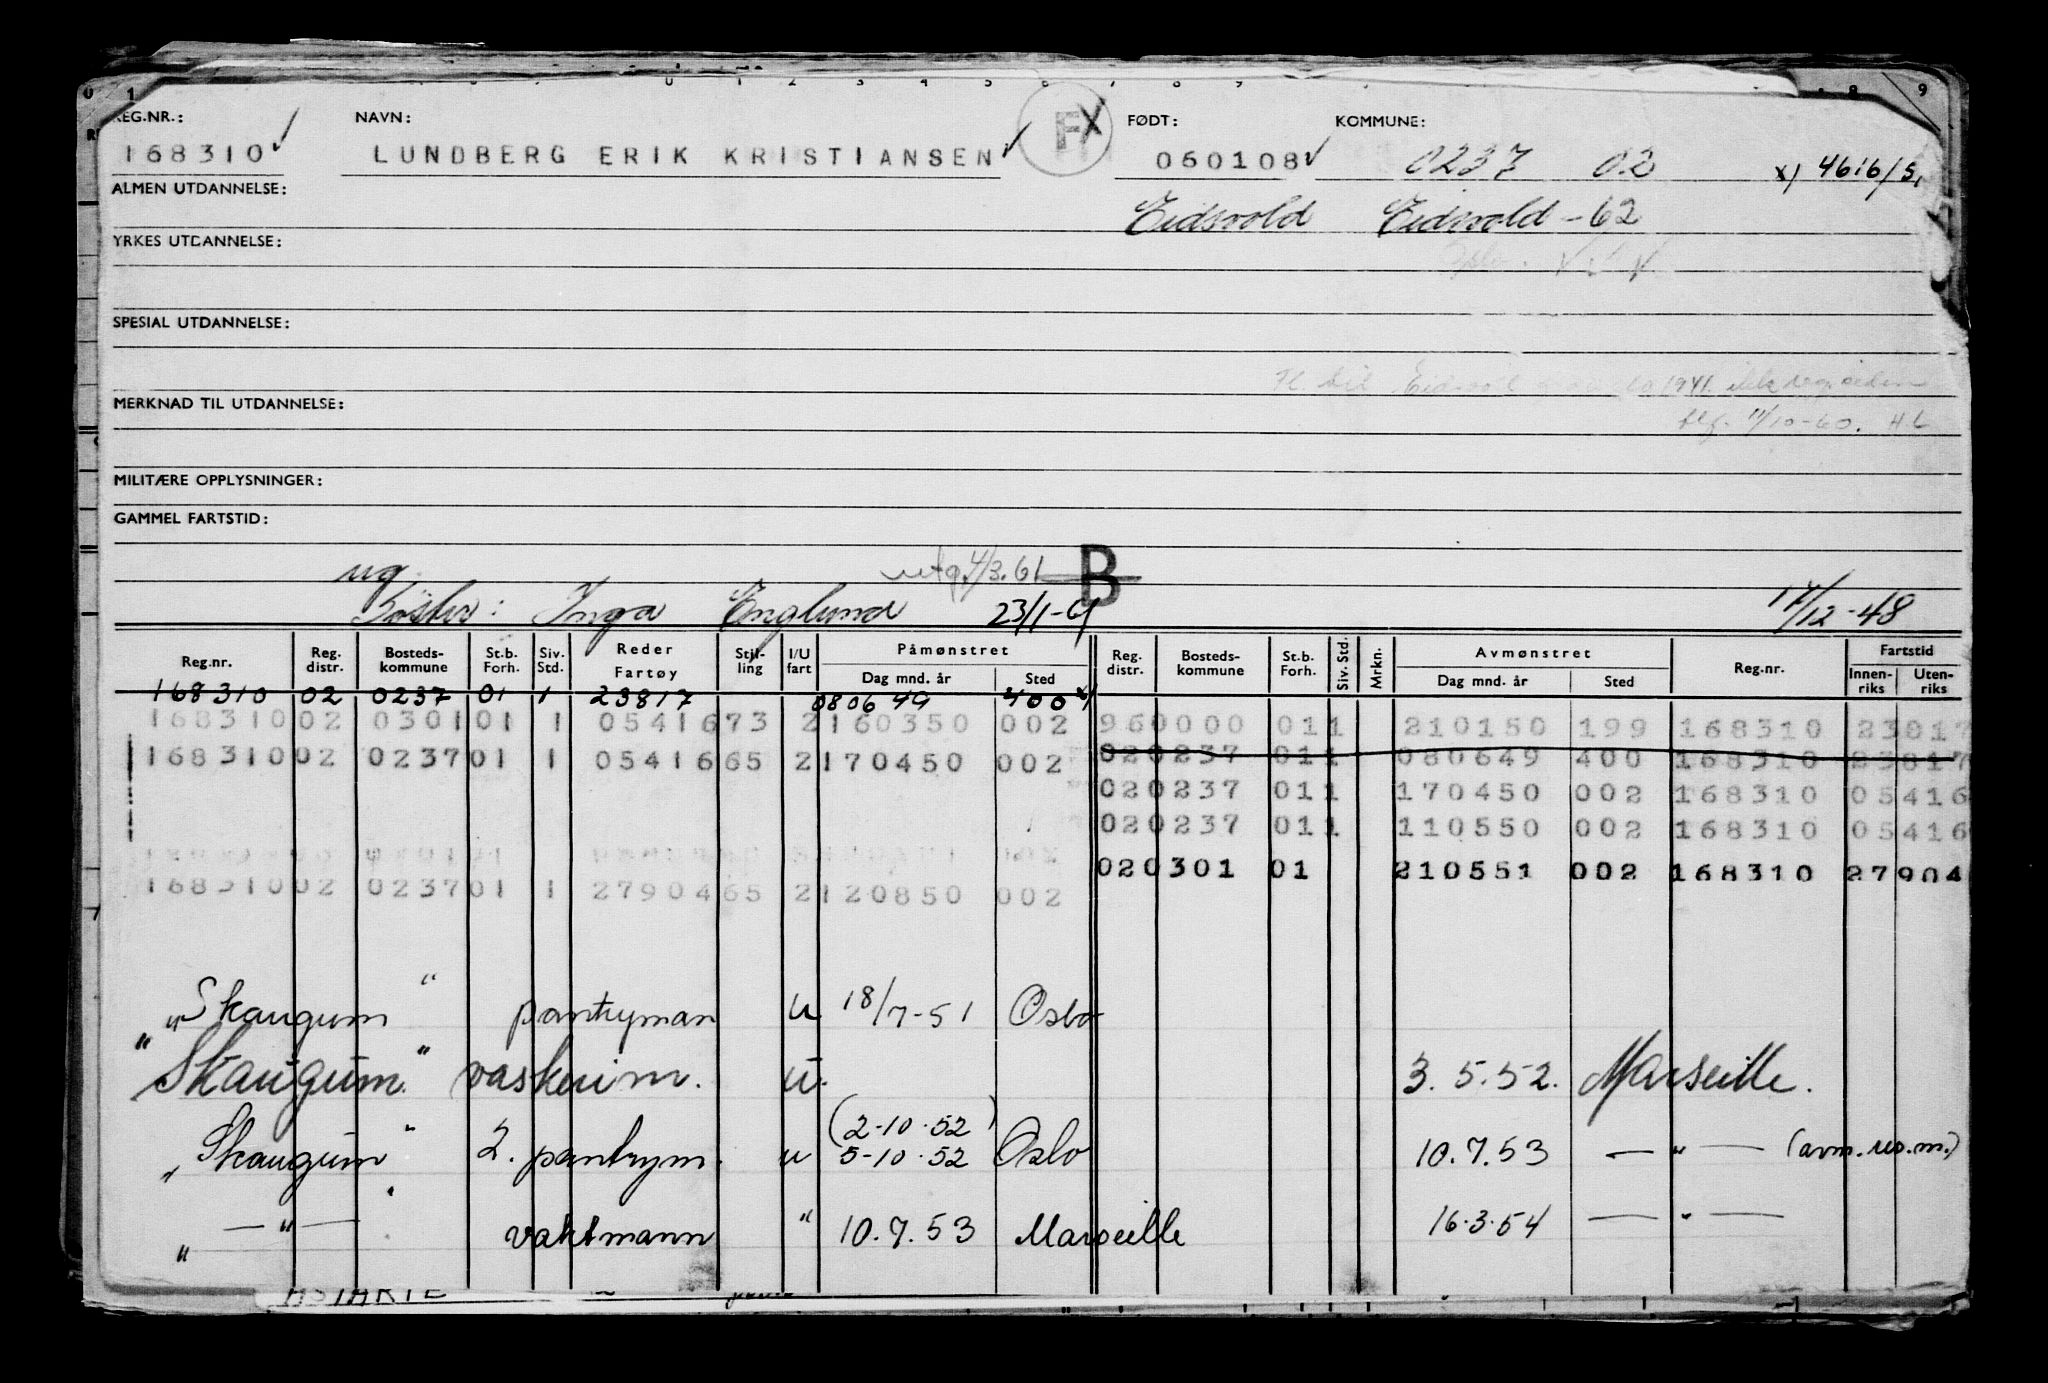 REG.NR.: NAVN: F X FØDT: KOMMUNE:
168310 LUNDBERG ERIK KRISTIANSEN 060108 0237 02 x) 4616/5,
ALMEN UTDANNELSE:
Eidsvold Eidsvold -62
YRKES UTDANNELSE:
SPESIAL UTDANNELSE:
1941.
MERKNAD TIL UTDANNELSE:
11/10-60. H.L
MILITÆRE OPPLYSNINGER:
GAMMEL FARTSTID:
ug utg. 4/3.61 B
Søster: Inga Englund 23/1-61 14/12-48
Reg.nr. Reg. distr. Bosteds-kommune St.b. Forh. Siv. Std. Reder Fartøy Stil-ling I/U fart Påmønstret Dag mnd. år Sted Reg. distr. Bosteds-kommune St.b. Forh. Siv. Std. Mrkn. Avmønstret Dag mnd. år Sted Reg.nr. Fartstid Innen-riks Uten-riks
168310 02 0237 01 1 23817 080649 400 x)
168310 02 0301 01 1 05416 73 2 160350 002 960000 01 1 210150 199 168310 23817
168310 02 0237 01 1 05416 65 2 170450 002 020237 01 1 080649 400 168310 23817
020237 01 1 170450 002 168310 05416
020237 01 1 110550 002 168310 05416
020301 01 210551 002 168310 27904
168310 02 0237 01 1 27904 65 2 120850 002
"Skaugum" pantryman u 18/7-51 Oslo
"Skaugum." vaskerim. u. 3.5.52. Marseille.
(2-10.52)
"Skaugum" 2. pantrym. u 5-10.52 Oslo 10.7.53 — " — (avm. us. m.)
" — " — " vaktmann " 10.7.53 Marseille 16.3.54 — " —
ASTARTE